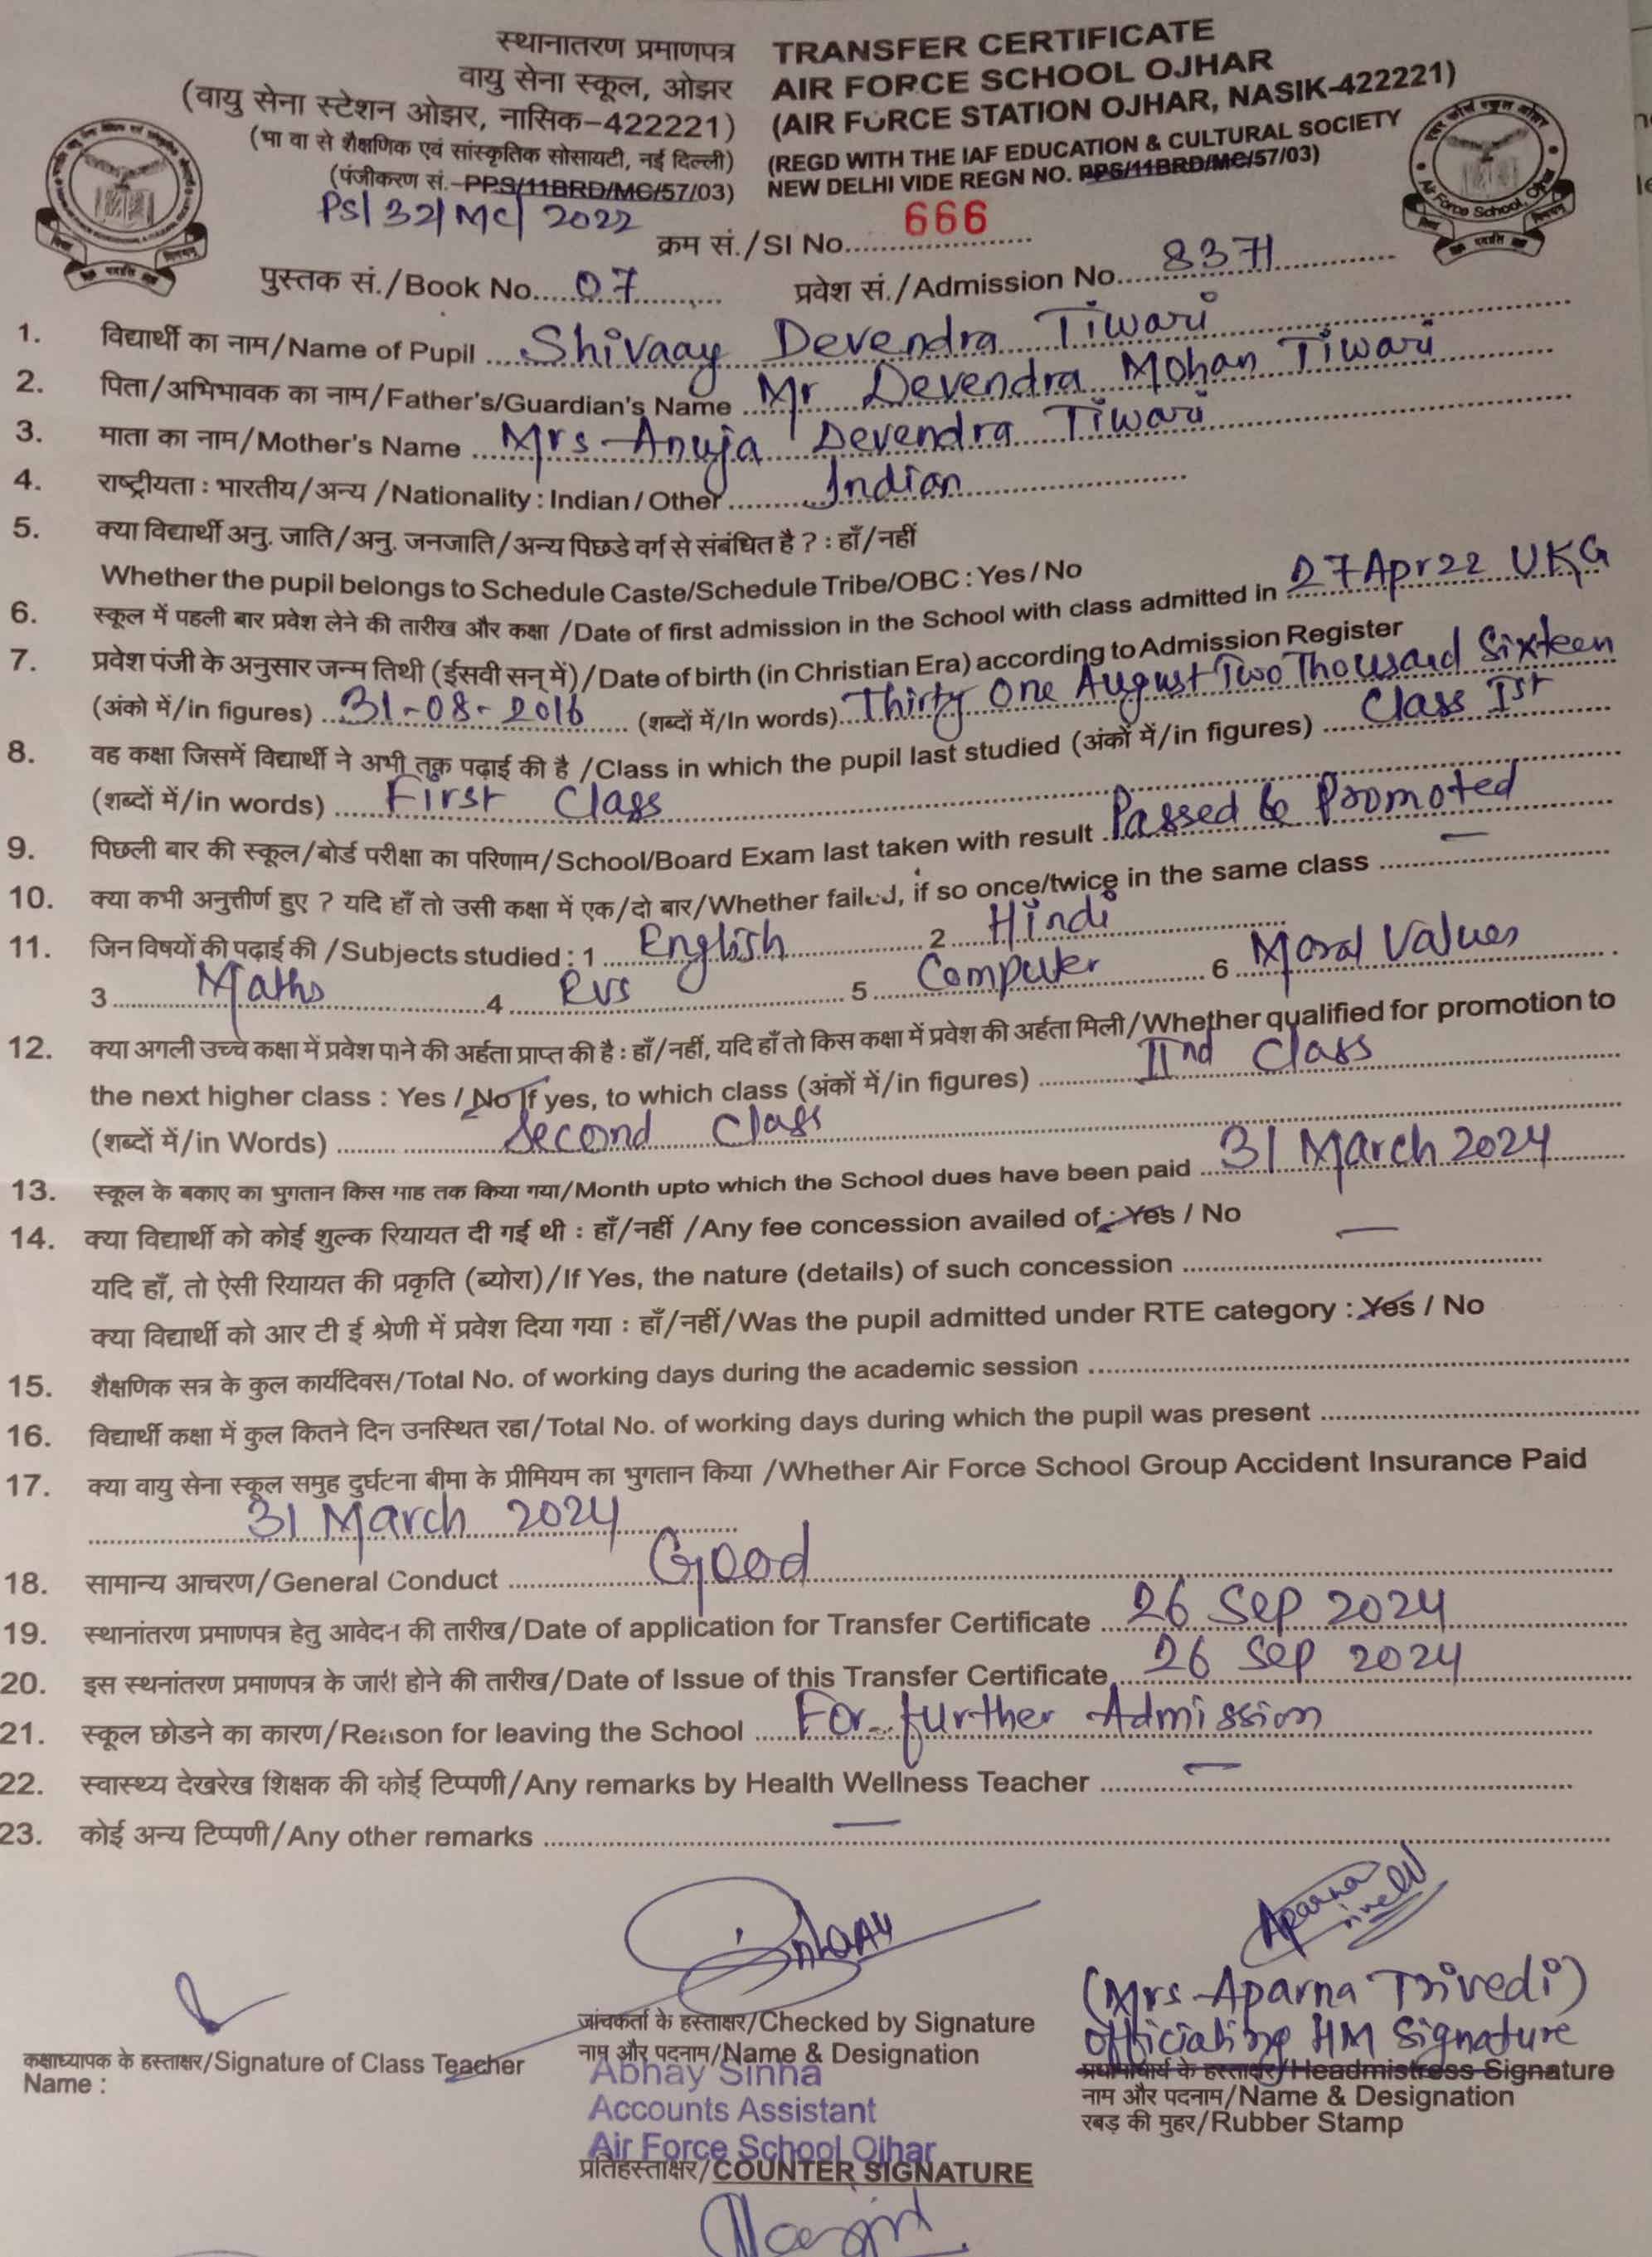 स्थानातरण प्रमाणपत्र TRANSFER CERTIFICATE
वायु सेना स्कूल, ओझर AIR FORCE SCHOOL OJHAR
(वायु सेना स्टेशन ओझर, नासिक-422221) (AIR FORCE STATION OJHAR, NASIK-422221)
(भा वा से शैक्षणिक एवं सांस्कृतिक सोसायटी, नई दिल्ली) (REGD WITH THE IAF EDUCATION & CULTURAL SOCIETY
(पंजीकरण सं.-PPS/11BRD/MC/57/03) NEW DELHI VIDE REGN NO. PPS/11BRD/MC/57/03)
PS/32/MC/2022
क्रम सं./SI No. 666
पुस्तक सं./Book No. 07 प्रवेश सं./Admission No. 8371
1. विद्यार्थी का नाम/Name of Pupil Shivaay Devendra Tiwari
2. पिता/अभिभावक का नाम/Father's/Guardian's Name Mr Devendra Mohan Tiwari
3. माता का नाम/Mother's Name Mrs Anuja Devendra Tiwari
4. राष्ट्रीयता : भारतीय/अन्य /Nationality : Indian / Other Indian
5. क्या विद्यार्थी अनु. जाति/अनु. जनजाति/अन्य पिछडे वर्ग से संबंधित है ? : हाँ/नहीं
Whether the pupil belongs to Schedule Caste/Schedule Tribe/OBC : Yes / No
6. स्कूल में पहली बार प्रवेश लेने की तारीख और कक्षा /Date of first admission in the School with class admitted in 27 Apr 22 UKG
7. प्रवेश पंजी के अनुसार जन्म तिथी (ईसवी सन् में)/Date of birth (in Christian Era) according to Admission Register
(अंको में/in figures) 31-08-2016 (शब्दों में/In words) Thirty One August Two Thousand Sixteen
8. वह कक्षा जिसमें विद्यार्थी ने अभी तक पढ़ाई की है /Class in which the pupil last studied (अंकों में/in figures) Class Ist
(शब्दों में/in words) First Class
9. पिछली बार की स्कूल/बोर्ड परीक्षा का परिणाम/School/Board Exam last taken with result Passed & Promoted
10. क्या कभी अनुत्तीर्ण हुए ? यदि हाँ तो उसी कक्षा में एक/दो बार/Whether failed, if so once/twice in the same class —
11. जिन विषयों की पढ़ाई की /Subjects studied : 1 English 2 Hindi
3 Maths 4 EVS 5 Computer 6 Moral Values
12. क्या अगली उच्च कक्षा में प्रवेश पाने की अर्हता प्राप्त की है : हाँ/नहीं, यदि हाँ तो किस कक्षा में प्रवेश की अर्हता मिली/Whether qualified for promotion to
the next higher class : Yes / No If yes, to which class (अंकों में/in figures) IInd Class
(शब्दों में/in Words) Second Class
13. स्कूल के बकाए का भुगतान किस माह तक किया गया/Month upto which the School dues have been paid 31 March 2024
14. क्या विद्यार्थी को कोई शुल्क रियायत दी गई थी : हाँ/नहीं /Any fee concession availed of : Yes / No
यदि हाँ, तो ऐसी रियायत की प्रकृति (ब्योरा)/If Yes, the nature (details) of such concession —
क्या विद्यार्थी को आर टी ई श्रेणी में प्रवेश दिया गया : हाँ/नहीं/Was the pupil admitted under RTE category : Yes / No
15. शैक्षणिक सत्र के कुल कार्यदिवस/Total No. of working days during the academic session
16. विद्यार्थी कक्षा में कुल कितने दिन उनस्थित रहा/Total No. of working days during which the pupil was present
17. क्या वायु सेना स्कूल समुह दुर्घटना बीमा के प्रीमियम का भुगतान किया /Whether Air Force School Group Accident Insurance Paid
31 March 2024
18. सामान्य आचरण/General Conduct Good
19. स्थानांतरण प्रमाणपत्र हेतु आवेदन की तारीख/Date of application for Transfer Certificate 26 Sep 2024
20. इस स्थनांतरण प्रमाणपत्र के जारी होने की तारीख/Date of Issue of this Transfer Certificate 26 Sep 2024
21. स्कूल छोडने का कारण/Reason for leaving the School For further Admission
22. स्वास्थ्य देखरेख शिक्षक की कोई टिप्पणी/Any remarks by Health Wellness Teacher —
23. कोई अन्य टिप्पणी/Any other remarks —
Aparna Trivedi
(Mrs Aparna Trivedi)
जांचकर्ता के हस्ताक्षर/Checked by Signature officiating HM Signature
कक्षाध्यापक के हस्ताक्षर/Signature of Class Teacher नाम और पदनाम/Name & Designation प्रधानाचार्य के हस्ताक्षर/Headmistress Signature
Name : Abhay Sinha नाम और पदनाम/Name & Designation
Accounts Assistant रबड़ की मुहर/Rubber Stamp
Air Force School Ojhar
प्रतिहस्ताक्षर/COUNTER SIGNATURE